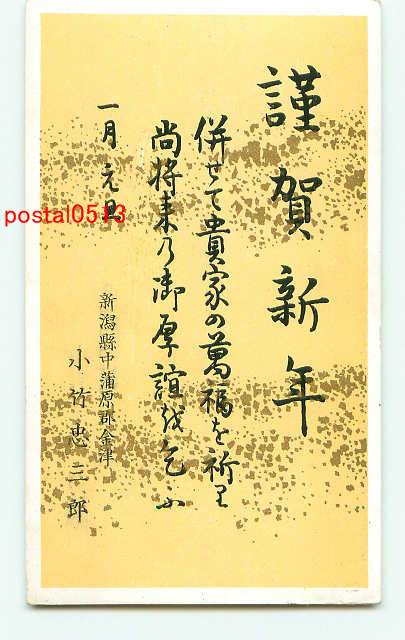 謹賀新年
併せて貴家の萬福を祈里
尚将来乃御厚誼越乞ふ
一月元旦
新潟縣中蒲原郡金津
小竹忠三郎
postal0513